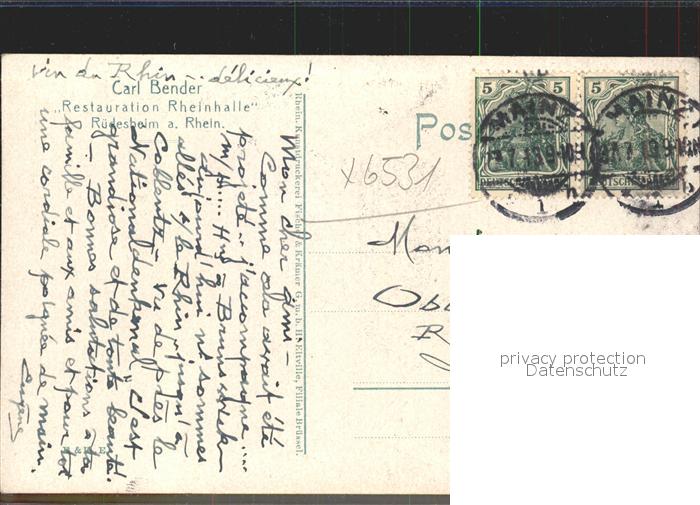 vin du Rhin... délicieux!
Carl Bender
„Restauration Rheinhalle"
Rüdesheim a. Rhein.
Mon cher ami –
Comme cela avait été
projeté j'accompagne ...
à Brunswick
aujourd'hui ns sommes
allés s/ le Rhin jusqu'à
vu de près le
Nationaldenkmal C'est
grandiose et de toute beauté!
– Bonnes salutations à ta
famille et aux amis et pour toi
une cordiale poignée de main.
Eugène
Rhein. Kunstdruckerei Fischer & Krämer G. m. b. H. Eltville, Filiale Brüssel.
Pos
x6531
5 5
5 5
MAINZ
MAINZ
1
Mon
Ob
R
privacy protection
Datenschutz